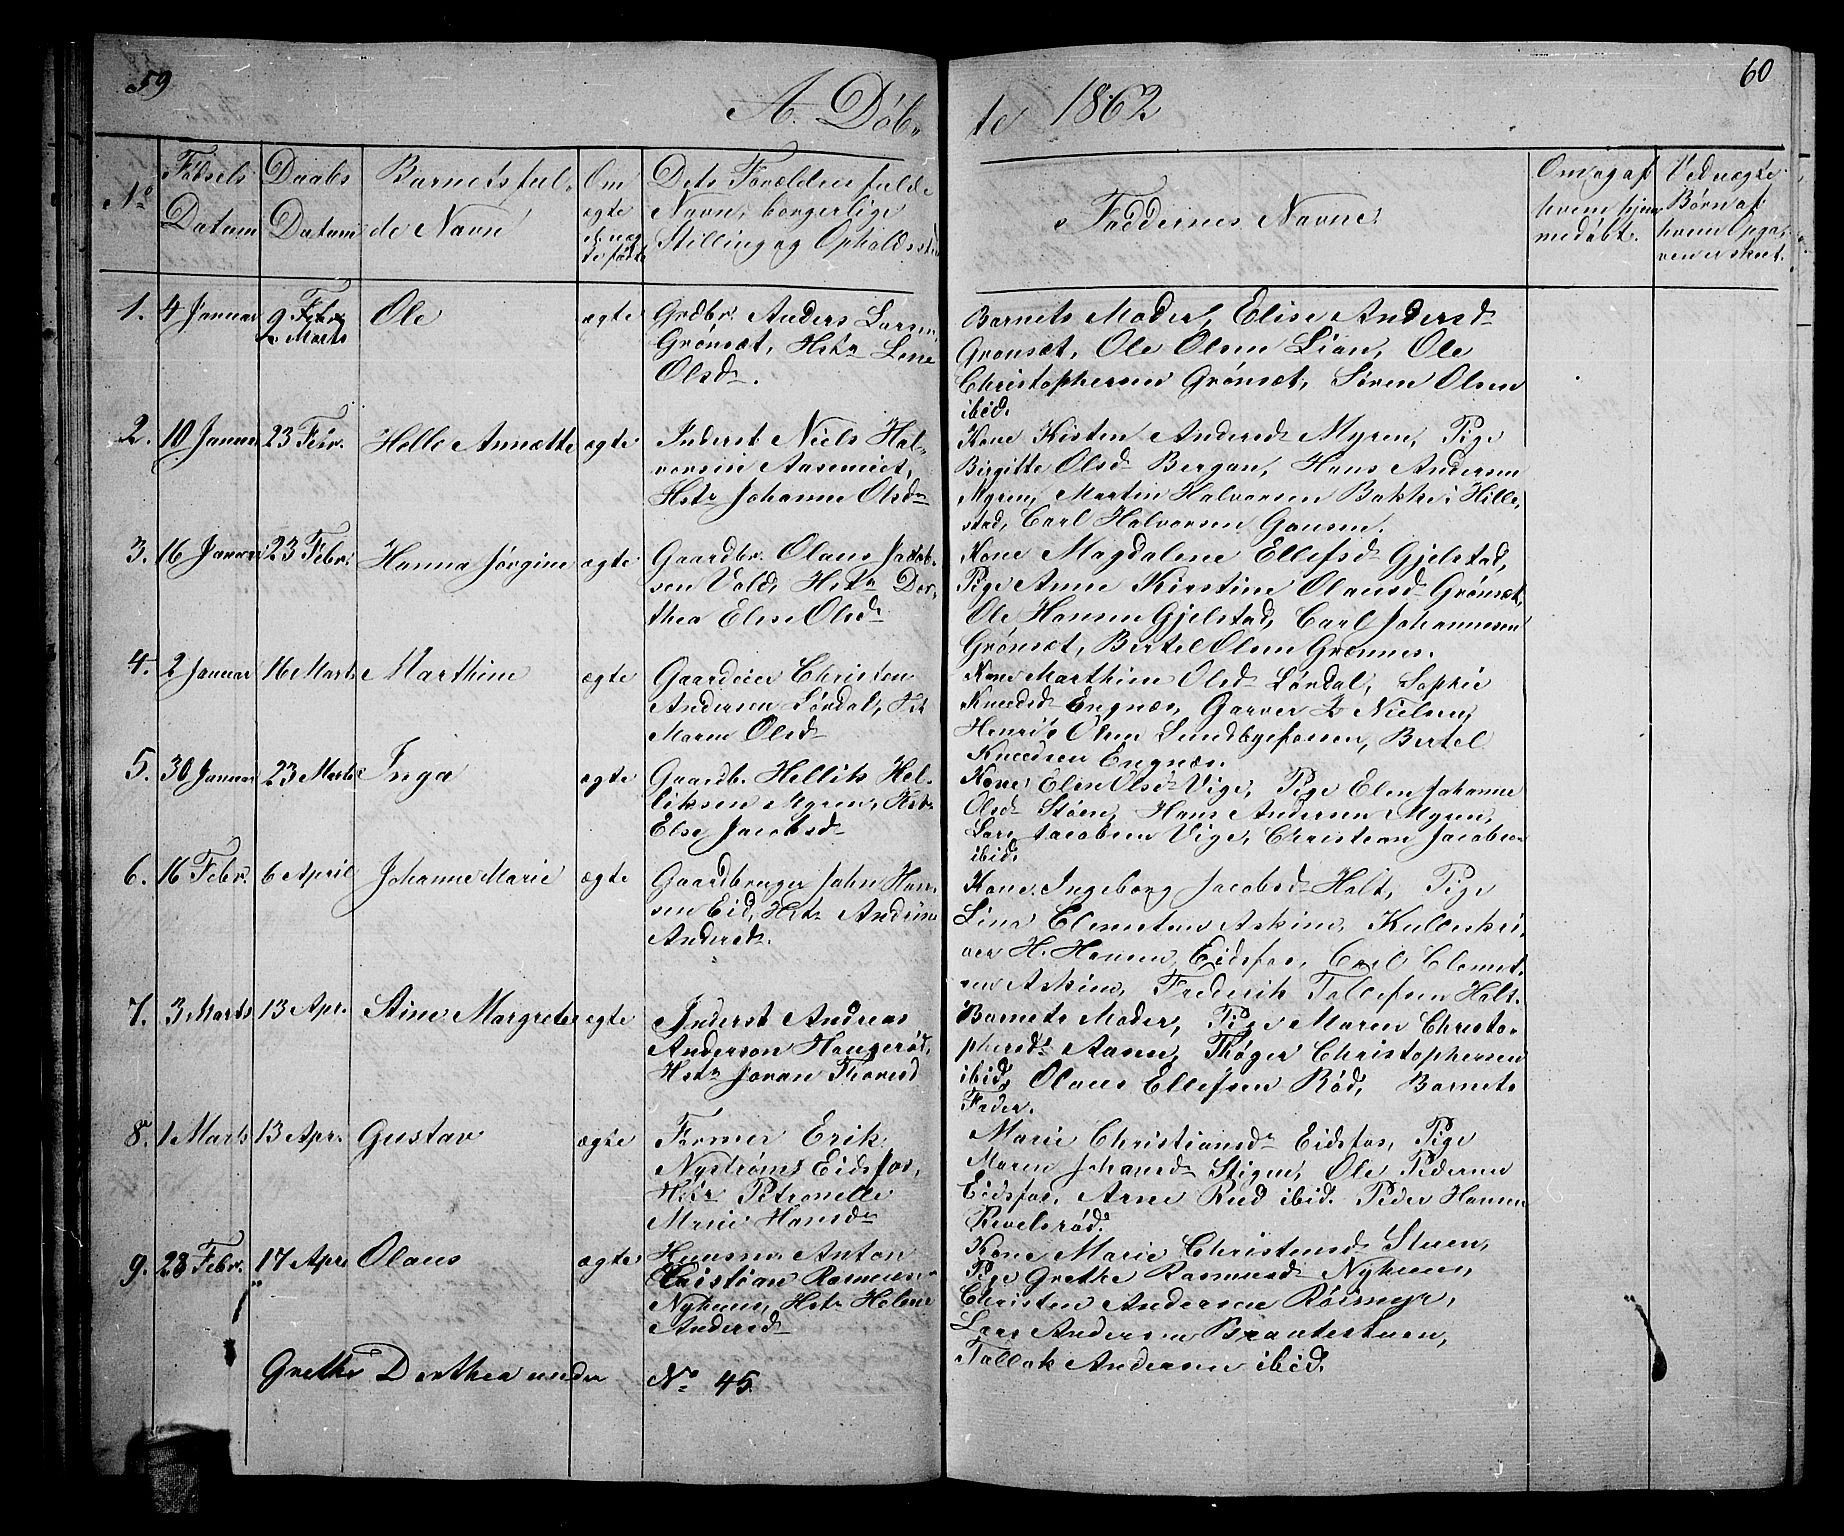 59
A. Döb-
te 1862
60
No
Födsels Datum
Daabs Datum
Barnets ful-
de Navn
Om ægte eller uægte
Dets Forældres fulde
Navn, borgerlige
Stilling og Opholdssted
Faddernes Navne.
Om og af
hvem hjem-
medöbt.
Ved uægte
Börn af
hvem Opga-
ven er skeet.
1. 4 Januar 9 Febr. 2 Marts Ole ægte Grdbr. Anders Larsen
Grönsæt, Hstr Lene
Olsdr.
Barnets Moder, Elise Andersd
Grönsæt, Ole Olsen Lian, Ole
Christophersen Grönsæt, Sören Olsen
ibid.
2. 10 Januar 23 Febr. Helle Annætte ægte Inderst Niels Hal-
vorsen Aasemiet,
Hstr Johanne Olsdr
Kone Kisten Andersd Myren, Pige
Birgitte Olsd Bergan, Hans Andersen
Myren, Martin Halvorsen Bakke i Hille-
stad, Carl Halvorsen Gousen.
3. 16 Januar 23 Febr. Hanna Jörgine ægte Gaardbr. Olaus Jacob-
sen Vold, Hstr Dor-
thea Elise Olsd
Kone Magdalene Ellefsd Gjelstad,
Pige Anne Kirstine Olausd Grönsæt,
Ole Hansen Gjelstad, Carl Johannesen
Grönsæt, Bertel Olsen Grænnes.
4. 2 Januar 16 Marts Marthine ægte Gaardeier Christen
Andersen Lördal, Hst
Maren Olsd
Kone Marthine Olsd Lördal, Sophie
Knudsd Engnæs, Garver L Nielsen,
Henrik Olsen Sundbyefossen, Bertel
Knudsen Engnæs.
5. 30 Januar 23 Marts Inga ægte Gaardb. Hellik Hel-
liksen Myren, Hstr
Else Jacobsd
Kone Elen Olsd Vige, Pige Elen Johanne
Olsd Stöne, Hans Andersen Myren,
Lars Jacobsen Vige, Christian Jacobsen
ibid.
6. 16 Febr. 6 April Johanne Marie ægte Gaardbruger John Han-
sen Eid, Hstr Andrine
Andersd.
Kone Ingeborg Jacobsd Holt, Pige
Lina Clemetsen Askim, Kullenkri-
ver H. Hansen Eidsfos, Carl Clemet-
sen Askim, Frederik Tollefsen Holt.
7. 3 Marts 13 Apr. Stine Margrete ægte Inderst Andreas
Anderson Haugeröd,
Hstr Joran Thoresd
Barnets Moder, Pige Maren Christo-
phersd Aasen, Thöger Christophersen
ibid, Olaus Ellefsen Röd, Barnets
Fader.
8. 1 Marts 13 Apr. Gustav ægte Former Erik
Nyströms Eidsfos,
Hstr Petronelle
Marie Hansdr
Marie Christiansdr Eidsfos, Pige
Maren Johansd Stigen, Ole Pedersen
Eidsfos, Arne Rud ibid. Peder Hansen
Revelsröd.
9. 28 Febr. 17 Apr. Olaus ægte Huusm. Anton
Christian Rasmusen
Nyhuus, Hstr Helene
Andersd
Kone Marie Christensd Stuen,
Pige Grethe Rasmusd Nyhuus,
Christen Andersen Rösmyr,
Lars Andersen Brantestuen,
Tollak Andersen ibid.
Grethe Dorthea under No 45